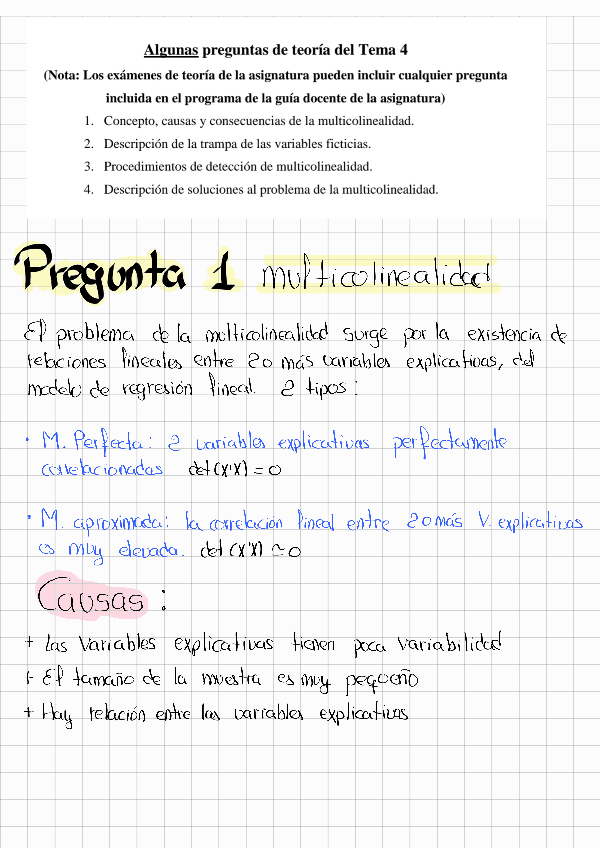 Algunas preguntas de teoría del Tema 4
(Nota: Los exámenes de teoría de la asignatura pueden incluir cualquier pregunta
incluida en el programa de la guía docente de la asignatura)
1. Concepto, causas y consecuencias de la multicolinealidad.
2. Descripción de la trampa de las variables ficticias.
3. Procedimientos de detección de multicolinealidad.
4. Descripción de soluciones al problema de la multicolinealidad.
Pregunta 1 multicolinealidad
El problema de la multicolinealidad surge por la existencia de
relaciones lineales entre 2 o más variables explicativas, del
modelo de regresión lineal. 2 tipos:
· M. Perfecta: 2 variables explicativas perfectamente
correlacionadas det(X'X) = 0
· M. aproximada: la correlación lineal entre 2 o más V. explicativas
es muy elevada. det(X'X) ≃ 0
Causas:
+ Las Variables explicativas tienen poca variabilidad
+ El tamaño de la muestra es muy pequeño
+ Hay relación entre las variables explicativas